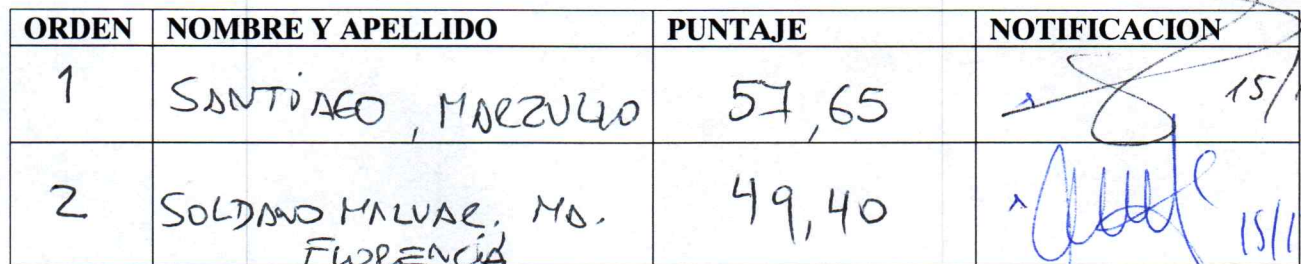 ORDEN NOMBRE Y APELLIDO PUNTAJE NOTIFICACION
1 SANTIAGO, MARZULLO 57,65 15/1
2 SOLDANO MALVAR. MA. 49,40 15/1
FLORENCIA